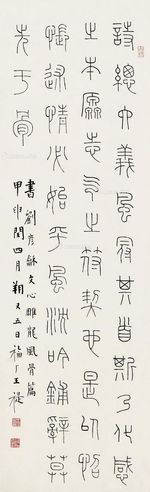 詩總六義風冠其首斯乃化感
之本源志气之符契也是以怊
悵述情必始乎風沈吟鋪辭莫
先于骨
書劉彥龢文心雕龍風骨篇
甲申閏四月朔又五日福厂王禔